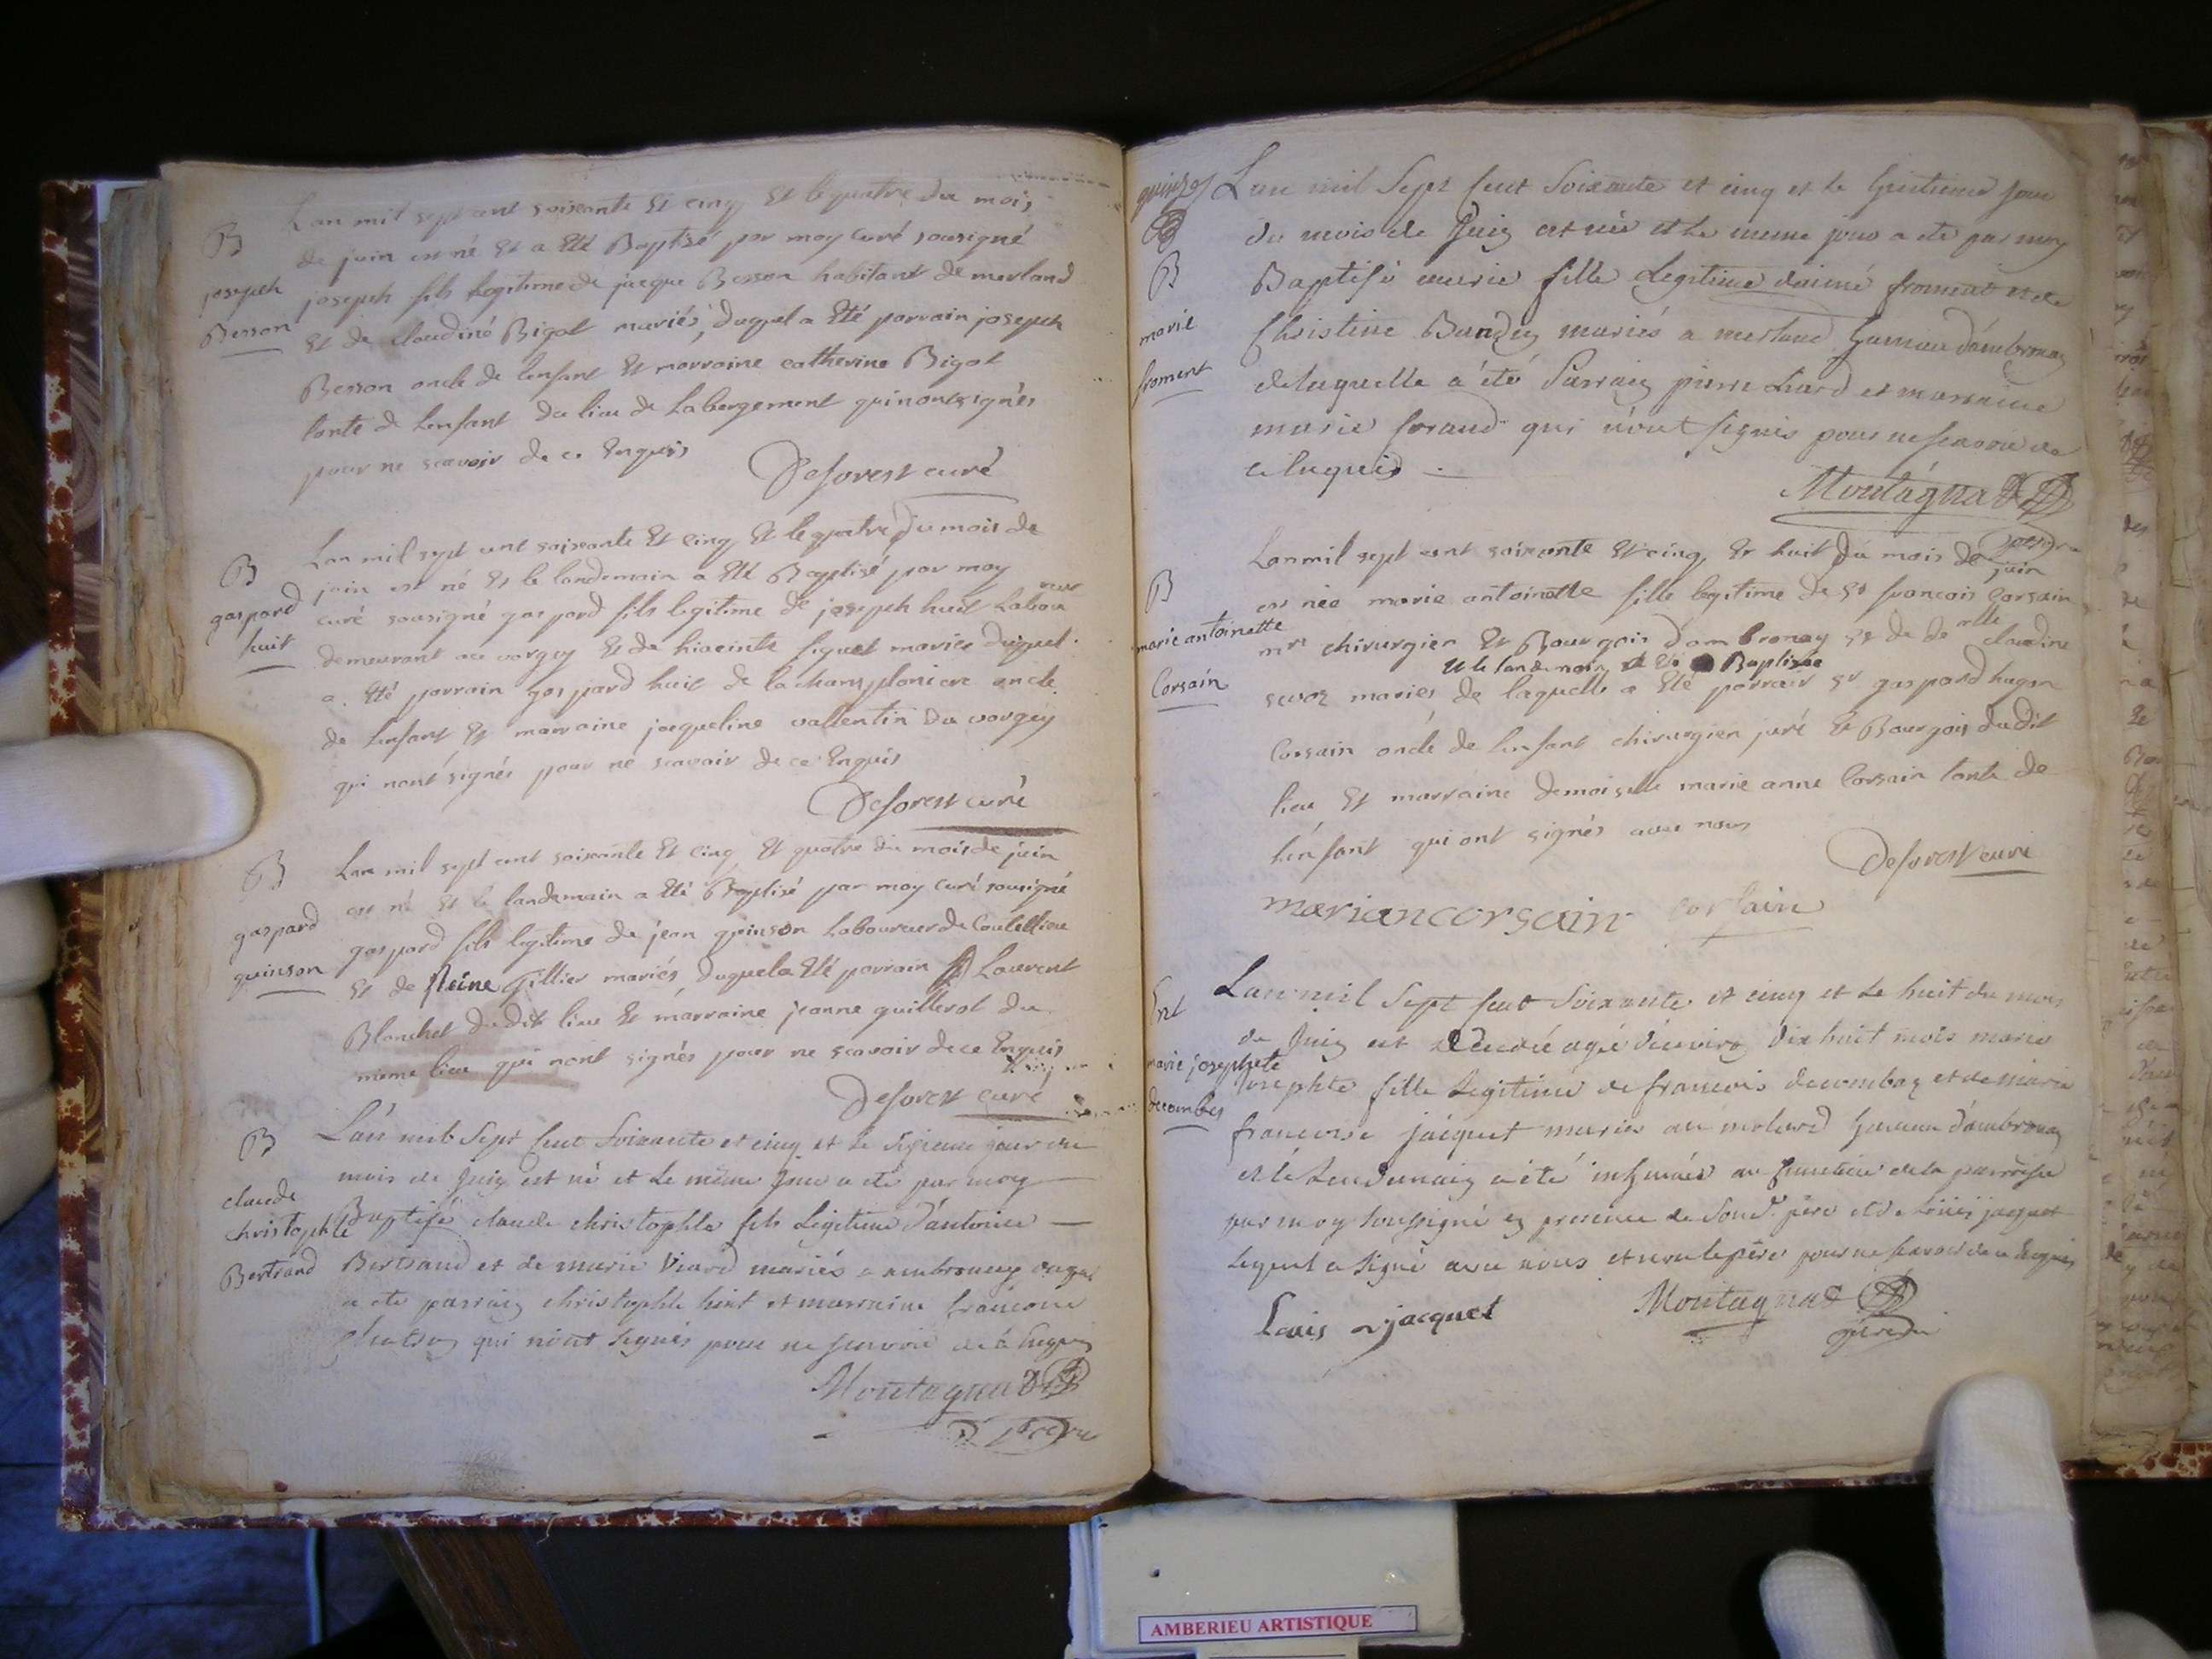 B
joseph
Besson
Lan mil sept cent soixante Et cinq Et le quatre du mois
de juin est né Et a Eté Baptisé par moy curé sousigné
joseph fils legitime de jacque Besson habitant de merland
Et de claudine Bigot mariés, duquel a Eté parrain joseph
Besson oncle de lenfant Et marraine catherine Bigot
tante de lenfant du lieu de Labergement qui nont signés
pour ne scavoir de ce Enquis
Deforest curé
B
gaspard
huit
Lan mil sept cent soixante Et cinq Et le quatre du mois de
juin est né Et le landemain a Eté Baptisé par moy
curé sousigné gaspard fils legitime de joseph huit Laboureur
demeurant au vorgey Et de hiacinte siguet mariés duquel
a Eté parrain gaspard huit de la champlaniere oncle
de lenfant Et marraine jacqueline vallentin du vorgey
qui nont signés pour ne scavoir de ce Enquis
Deforest curé
B
gaspard
quinson
Lan mil sept cent soixante Et cinq Et quatre du mois de juin
est né Et le landemain a Eté Baptisé par moy curé sousigné
gaspard fils legitime de jean quinson Laboureur de Coutellieu
Et de Reine Gillier mariés, duquel a Eté parrain Laurent
Blanchet dudit lieu Et marraine jeanne guillerot du
meme lieu qui nont signés pour ne scavoir de ce Enquis
Deforest curé
B
claude
christophle
Bertrand
L'an mil Sept Cent Soixante et cinq et le sixieme jour du
mois de Juin est né et le même jour a eté par moy
Baptisé claude christophle fils Legitime d'antoine
Bertrand et de marie Viard mariés a ambronay duquel
a ete parrain christophle huit et marraine francoise
qui n'ont signés pour ne scavoir de ce Enquis
Montagnat
quinze
L'an mil Sept Cent Soixante et cinq et le huitieme jour
du mois de Juin est née et le meme jour a ete par moy
B
marie
froment
Baptisé marie fille Legitime d'aimé froment et de
Christine Bundey mariés a merland hameau d'ambronay
de laquelle a été Parrain pierre Liard et marraine
marie Coraud qui n'ont signés pour ne scavoir de
ce Enquis
Montagnat
B
marie antoinette
Corsain
Lan mil sept cent soixante Et cinq, Et huit du mois de juin
est née marie antoinette fille legitime de Sr francois Corsain
mre chirurgien Et Bourgois Dambronay Et de delle claudine
Et le landemain a Eté Baptisée
sevoz mariés de laquelle a Eté parrain Sr gaspard hugon
Corsain oncle de lenfant chirurgien juré Et Bourgois dudit
lieu Et marraine demoiselle marie anne Corsain tante de
lenfant qui ont signés avec nous
Deforest curé
mariancorsain corsain
Ent
marie josephete
decombes
L'an mil Sept Cent Soixante et cinq et le huit du mois
de Juin est decedée agée d'environ dix huit mois marie
Josephte fille Legitime de francois decombaz et de marie
francoise jacquet mariés au molard hameau d'ambronay
et le Lendemain a été inhumée au cimetiere de la parroisse
par moy soussigné en presence de Sond. père et de Louis jacquet
Lequel a signé avec nous et non le père pour ne scavoir de ce Enquis
Louis jacquet
Montagnat
AMBERIEU ARTISTIQUE